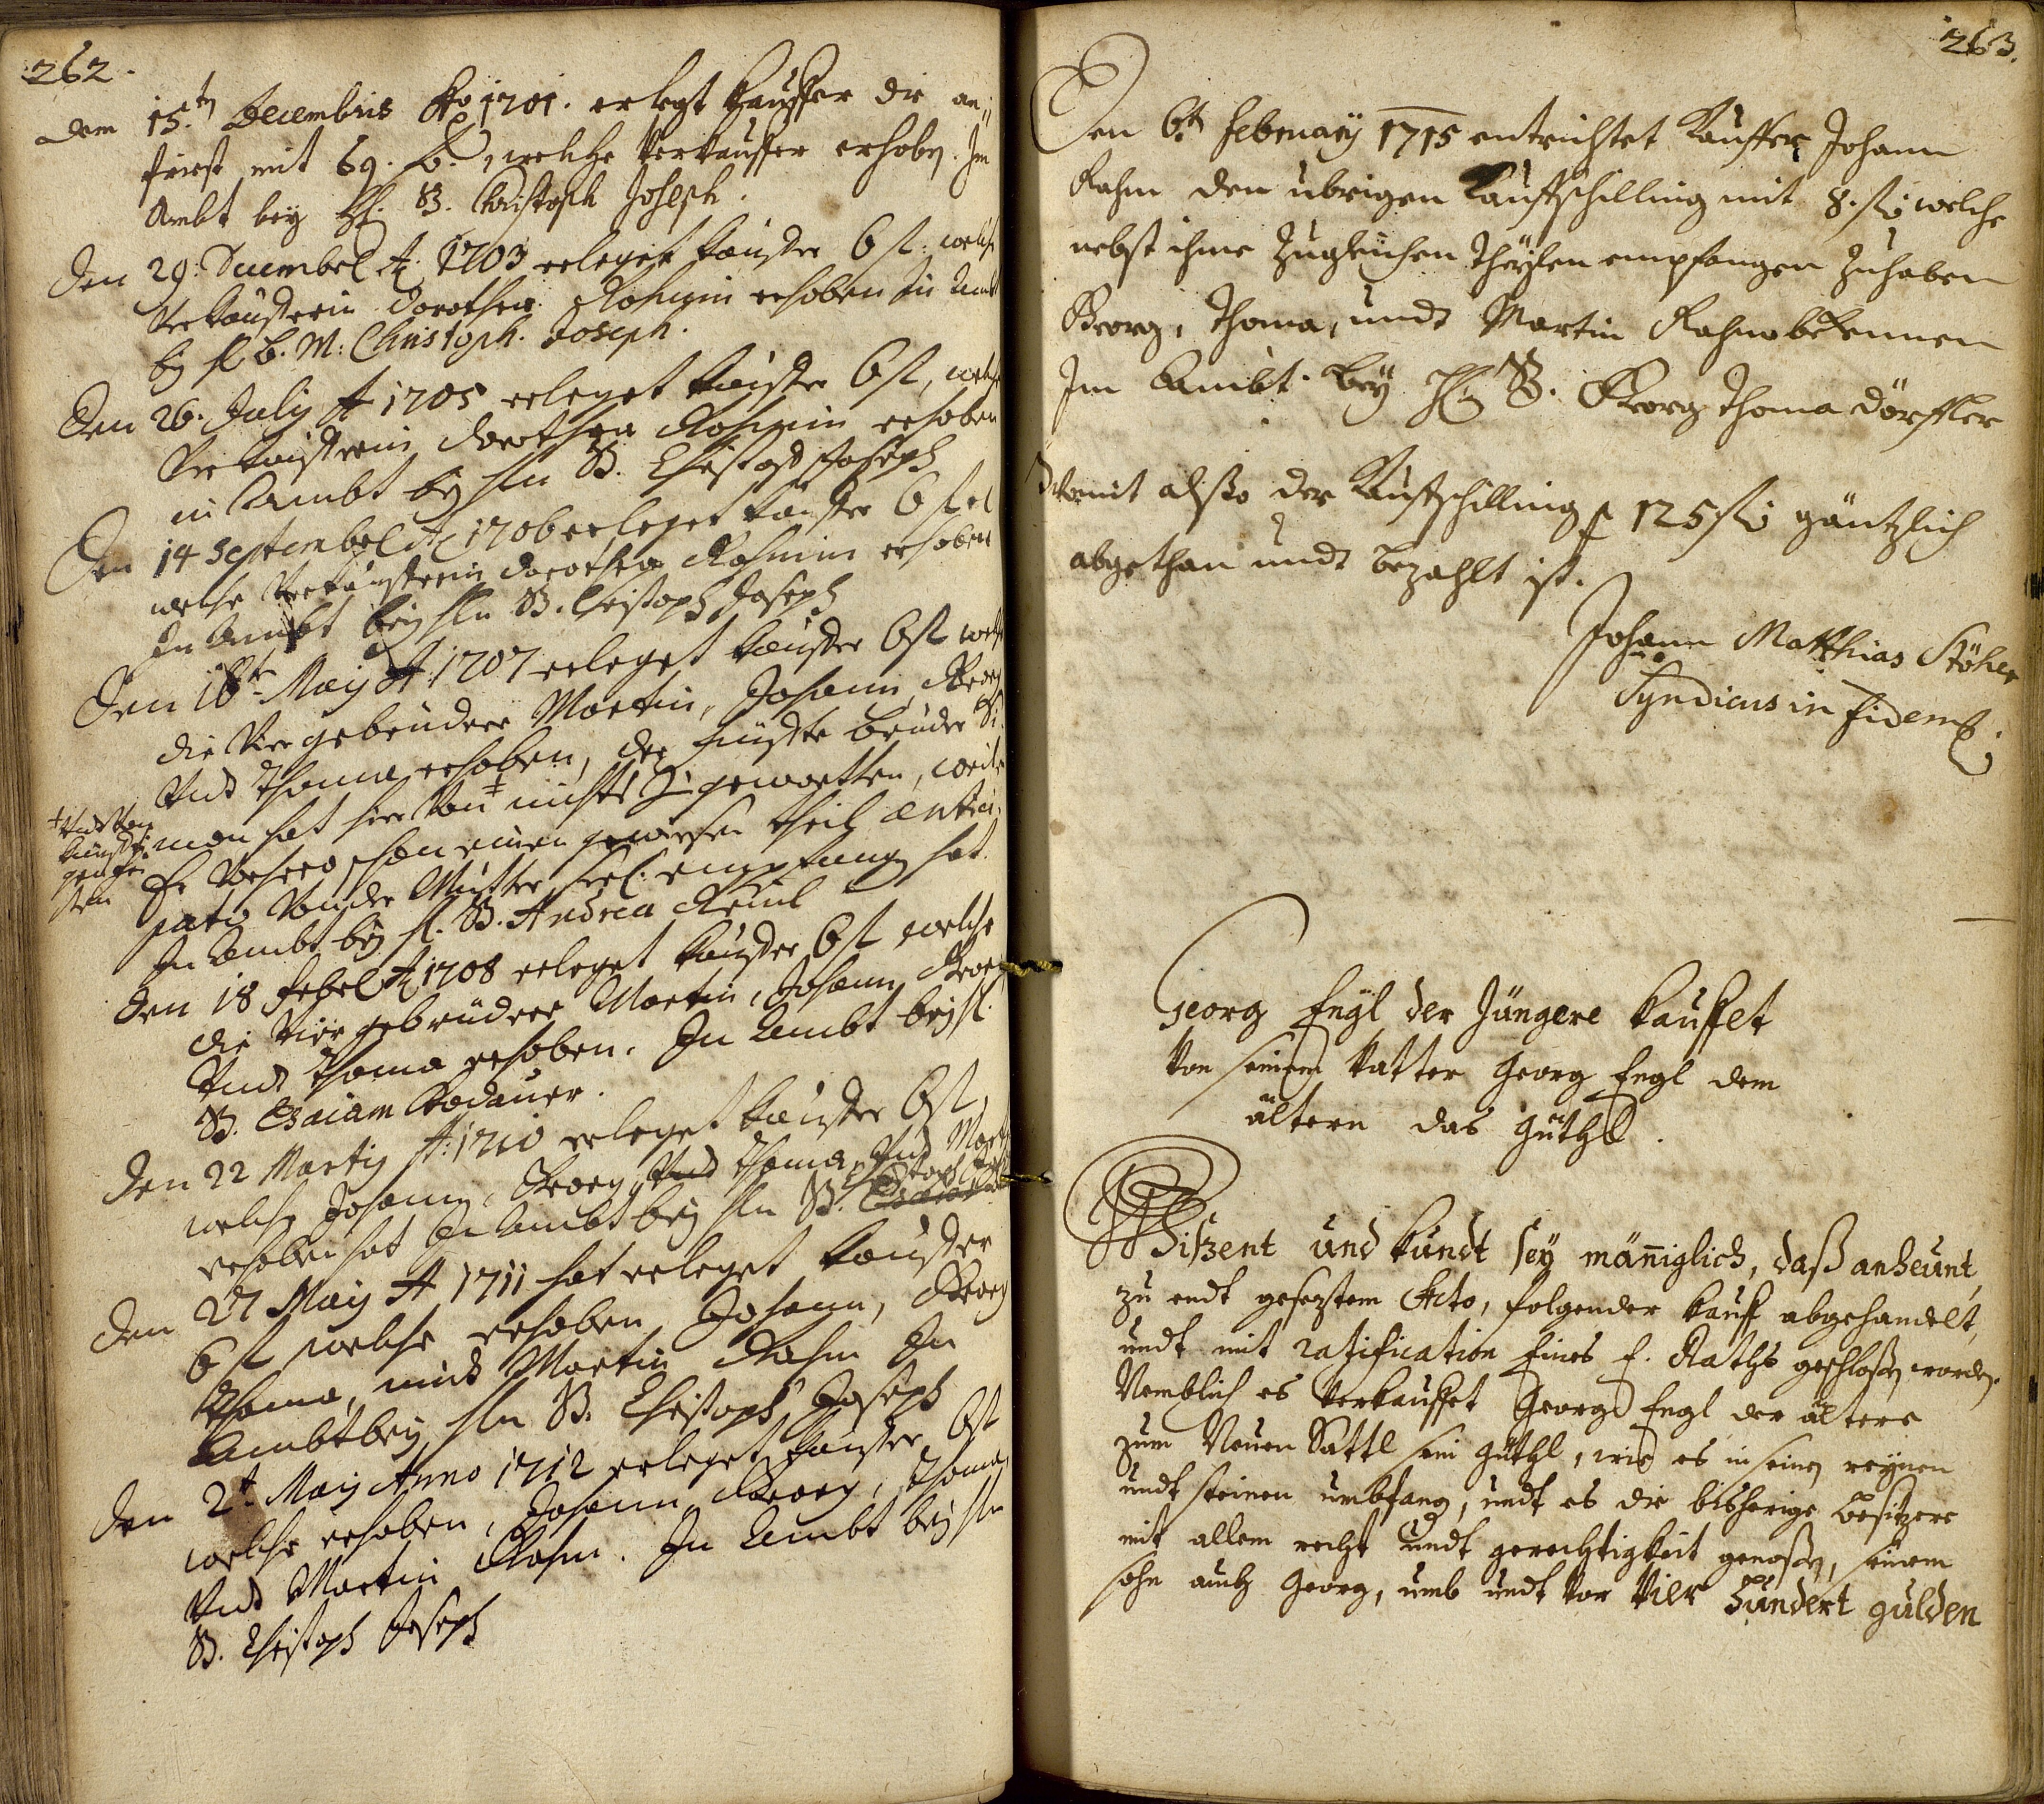 262.
dem 15.ten Decembris Ao 1701. erlegt Kauffer die an
frist mit 69. fl., welche Verkauffer erhobn. Im
Ambt bey H. B. Christoph Joseph.
Den 29. Decembel A 1703 erleget kauffer 6 fl: welche
Verkaufferin Dorothea Rahmin erhoben in Ambt
bey H B. M: Christoph. Joseph.
Den 26. July A 1705 erleget kauffer 6 fl, welche
Verkaufferin Dorothea Rahmin erhoben
in Ambt bey Hln B. Christoph Joseph
Den 14 Septembel A 1706 erleget kauffer 6 fl
welche Verkaufferin Dorothea Rahmin erhoben
In Ambt bey Hln B. Christoph Joseph
Den 18te May A 1707 erleget kauffer 6 fl welche
die Vier gebrüdere Martin, Johann, Georg
Und Thoma erhoben, der fünffte bruder Si
mon hat hier Von nichts Zugewartten, weile
Er Vorhero schon einen gewissen theil antici
pato Von der Mutter seel. empfangen hat.
In Ambt bey H. B. Andrea Reinl
Den 18 Febel A 1708 erleget kauffer 6 fl welche
die Vier gebrüdere Martin, Johann, Georg
Und Thoma erhoben. In Ambt bey H.
B. Esaiam Kodauer.
Den 22 Marty A: 1710 erleget kauffer 6 fl,
welche Johann, Georg, Und Thoma, Und Mart
erhoben hat In Ambt bey Hln B. Christoph
Den 27 May A 1711 hat erleget kauffer
6 fl welche erhoben Johann, Georg
Thoma, und Martin Rahm In
Ambt bey Hln B. Christoph Joseph
Den 2t. May Anno 1712 erleget kauffer 6 fl
welche erhoben, Johann, Georg, Thoma,
Und Martin Rahm. In Ambt bey Hln
B. Christoph Joseph
263.
Den 6.ten February 1715 entrichtet Kauffer Johann
Rahm den übrigen Kauffschilling mit 8. fl. welche
nebst ihme Zugleichen Theylen empfangen Zuhaben
Georg, Thoma, undt Martin Rahm bekennen
Im Ambt. bey H. B. Georg Thoma Dörffler
Womit also der Kauffschilling p 125 fl. gäntzlich
abgethan undt bezahlt ist.
Johann Matthias Stöhr
Syndicus in fidem.
Georg Engl der Jüngere kauffet
Von seinem Vatter Georg Engl dem
ältern das güthl.
Wißent und kundt sey mäniglich, daß anheunt,
zu endt gesetztem Acto, folgender kauff abgehandelt,
undt mit ratification Eines E. Raths geschloßen worden.
Nemblich es Verkauffet Georg Engl der ältere
zum Neuen Sattl sein güthl, wie es in seinen reynen
undt steinen umbfang, undt es die bisherige besitzere
mit allem recht undt gerechtigkeit genoßen, seinem
sohn auch Georg, umb undt vor Vier Hundert gulden